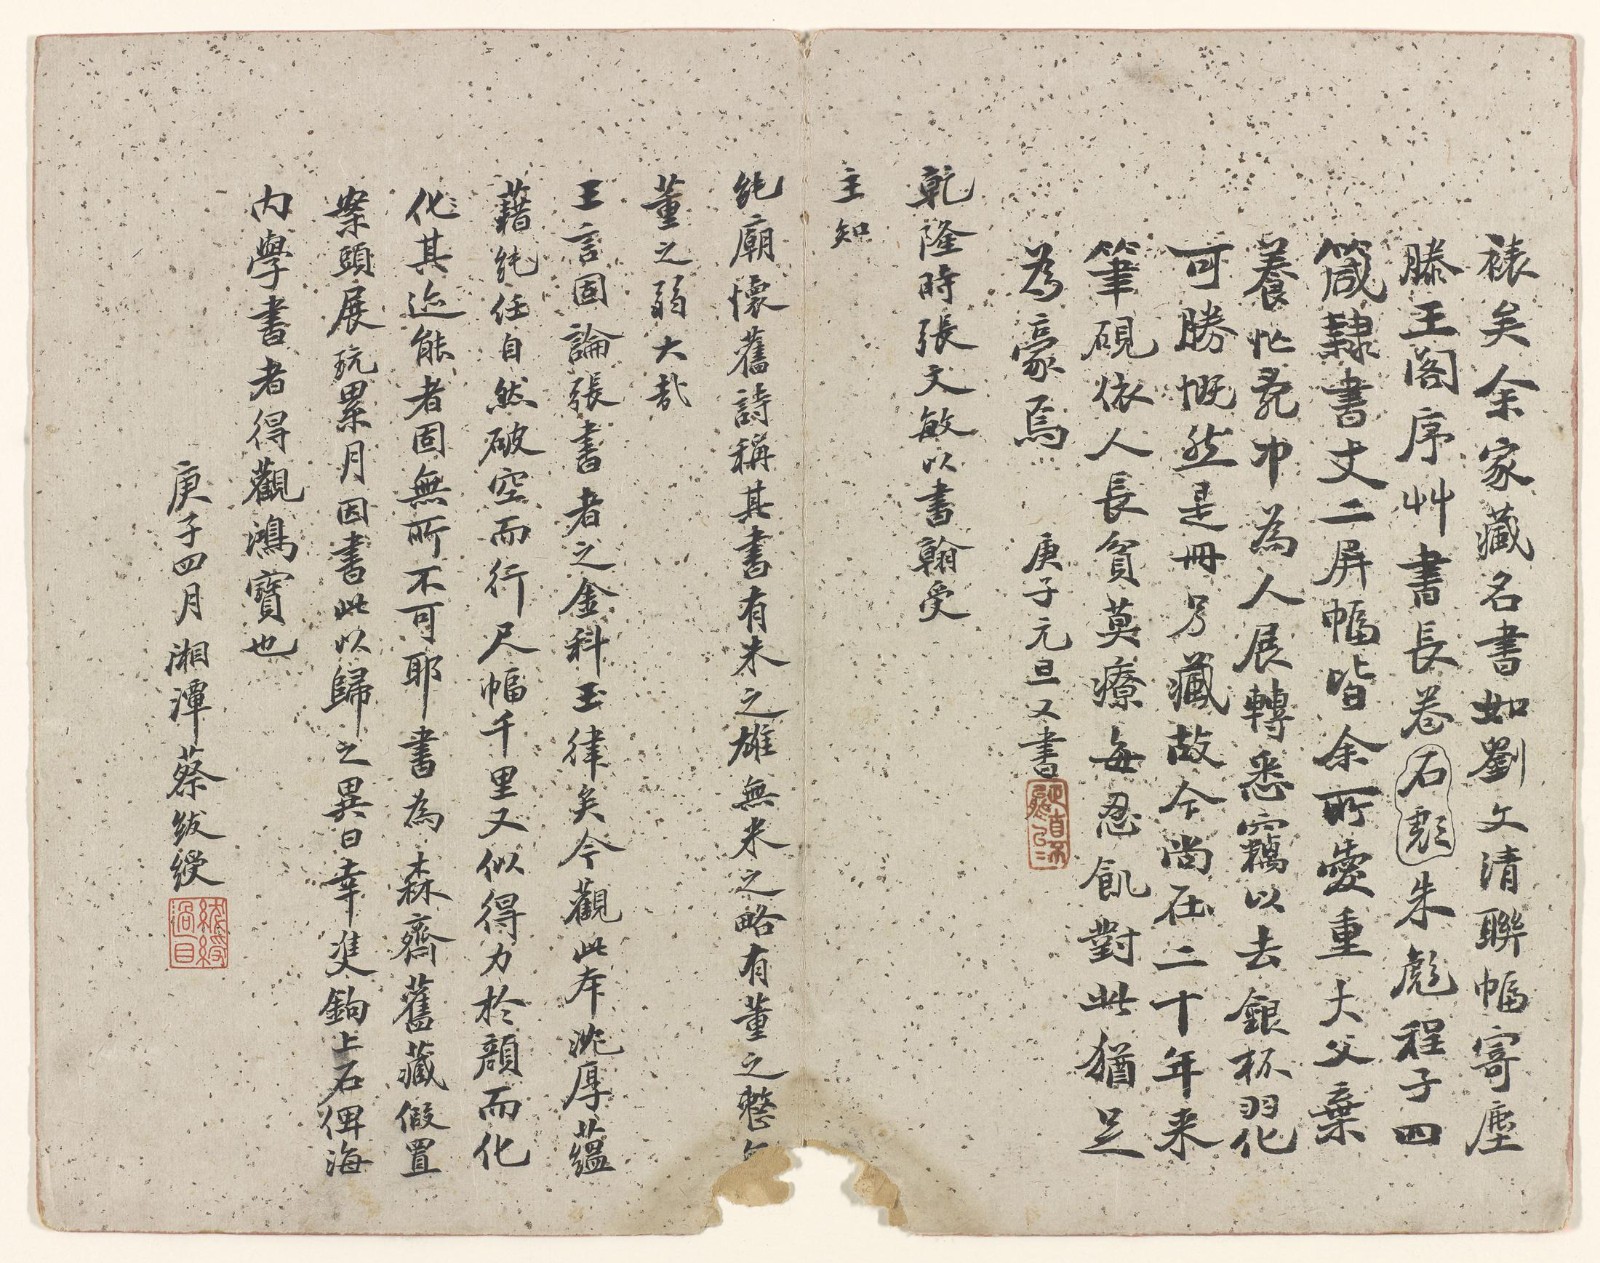 裱矣余家藏名書如劉文清聯幅寄塵
滕王閣序艸書長卷石彪朱彪程子四
箴隸書丈二屏幅皆余所愛重大父棄
養忙亂中為人展轉悉竊以去銀杯羽化
可勝慨然是冊另藏故今尚在二十年來
筆硯依人長貧莫療每忍飢對此猶足
為豪焉 庚子元旦又書
乾隆時張文敏以書翰受
主知
純廟懷舊詩稱其書有米之雄無米之略有董之整無
董之弱大哉
王言固論張書者之金科玉律矣今觀此本沈厚蘊
藉純任自然破空而行尺幅千里又似得力於顏而化
化其迹能者固無所不可耶書為森齋舊藏假置
案頭展玩累月因書此以歸之異日幸雙鉤上石俾海
內學書者得觀鴻寶也
庚子四月湘潭蔡紱綬
紱綬過目